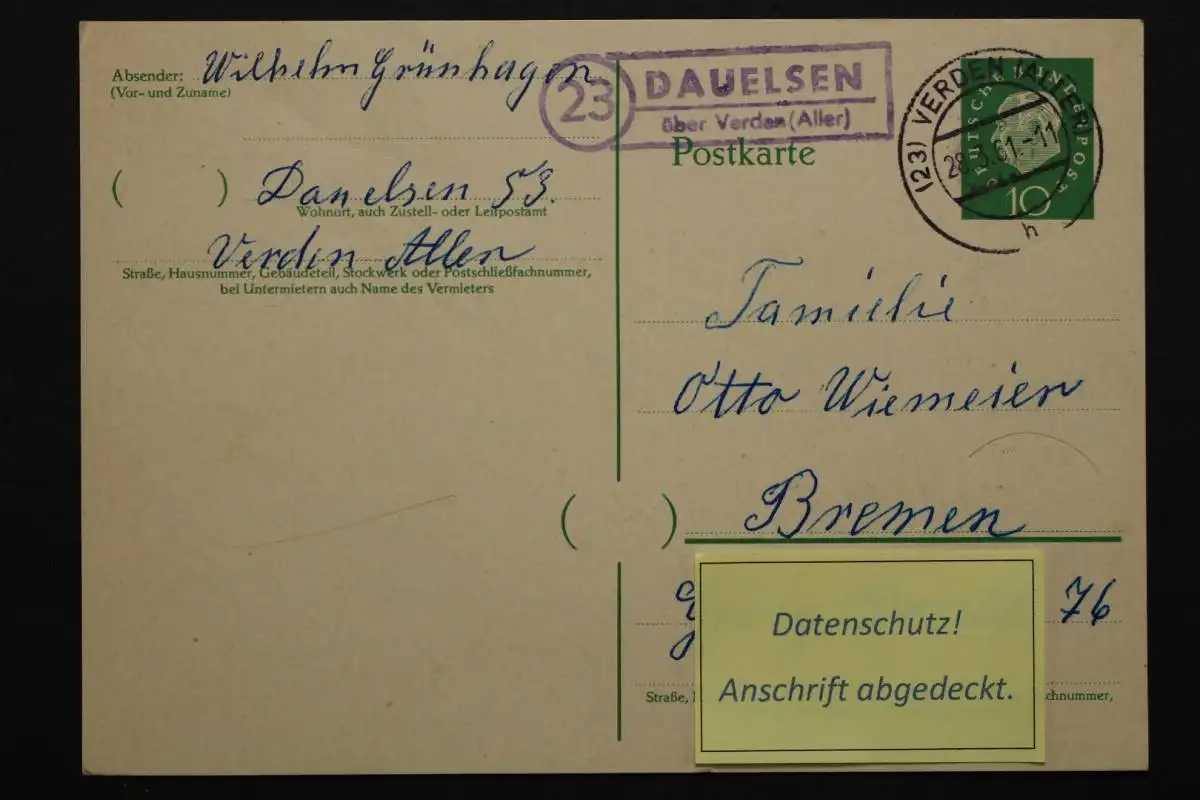 Absender: Wilhelm Grünhagen
(Vor- und Zuname)
23 DAUELSEN
über Verden (Aller)
(23) VERDEN (ALLER)
28.3.61.-11
h
DEUTSCHE BUNDESPOST
10
Postkarte
( ) Dauelsen 53.
Wohnort, auch Zustell- oder Leitpostamt
Verden Aller
Straße, Hausnummer, Gebäudeteil, Stockwerk oder Postschließfachnummer,
bei Untermietern auch Name des Vermieters
Familie
Otto Wiemeier
( ) Bremen
76
Datenschutz!
Anschrift abgedeckt.
Straße, chnummer,